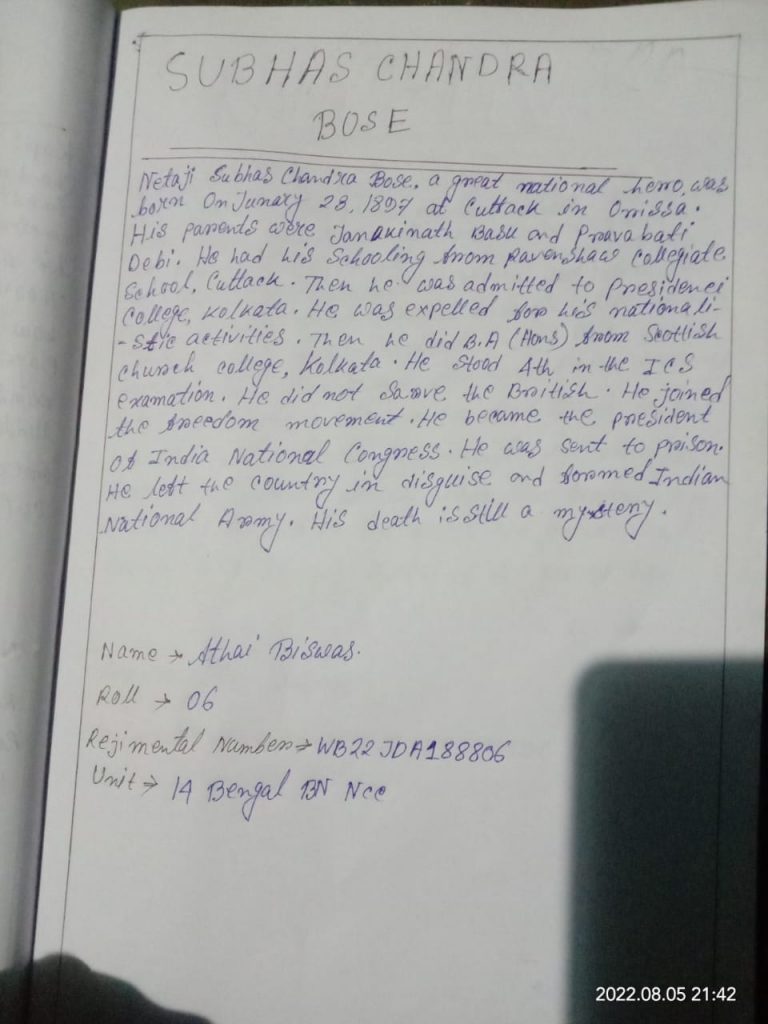 SUBHAS CHANDRA
BOSE
Netaji Subhas Chandra Bose, a great national hero, was
born On Junary 23, 1897 at Cuttack in Orissa.
His parents were Janakinath Basu and Pravabati
Debi. He had his Schooling from Ravenshaw Collegiate
School, Cuttack. Then he was admitted to Presidenci
College, Kolkata. He was expelled for his nationali-
-stic activities. Then he did B.A (Hons) from Scottish
church college, Kolkata. He stood 4th in the ICS
examation. He did not Sarve the British. He joined
the freedom movement. He became the president
of India National Congress. He was sent to prison.
He left the country in disguise and formed Indian
National Army. His death is still a mystery.
Name → Athai Biswas.
Roll → 06
Rejimental Number → WB22JDA188806
Unit → 14 Bengal BN Ncc
2022.08.05 21:42